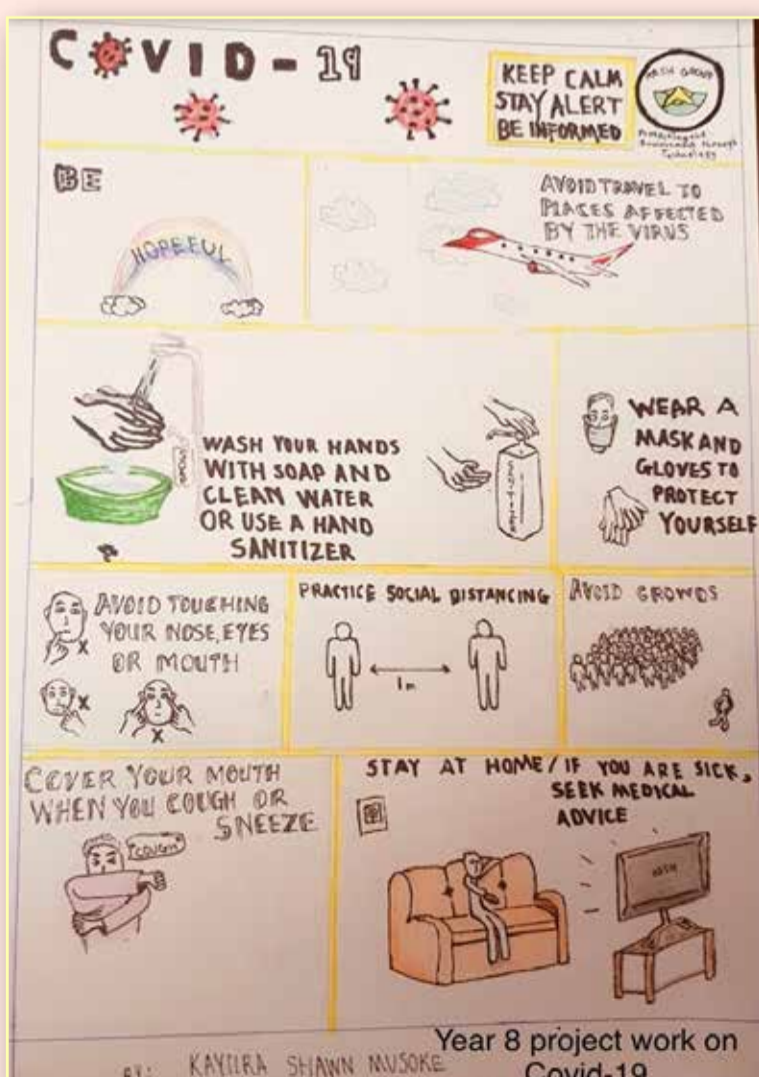 COVID-19
KEEP CALM
STAY ALERT
BE INFORMED
BE
HOPEFUL
AVOID TRAVEL TO
PLACES AFFECTED
BY THE VIRUS
WASH YOUR HANDS
WITH SOAP AND
CLEAN WATER
OR USE A HAND
SANITIZER
SANITIZER
WEAR A
MASK AND
GLOVES TO
PROTECT
YOURSELF
AVOID TOUCHING
YOUR NOSE, EYES
OR MOUTH
X
X
X
PRACTICE SOCIAL DISTANCING
1m
AVOID CROWDS
COVER YOUR MOUTH
WHEN YOU COUGH OR
SNEEZE
"COUGH"
STAY AT HOME/IF YOU ARE SICK,
SEEK MEDICAL
ADVICE
BY: SHAWN MUSOKE
Year 8 project work on
Covid-19